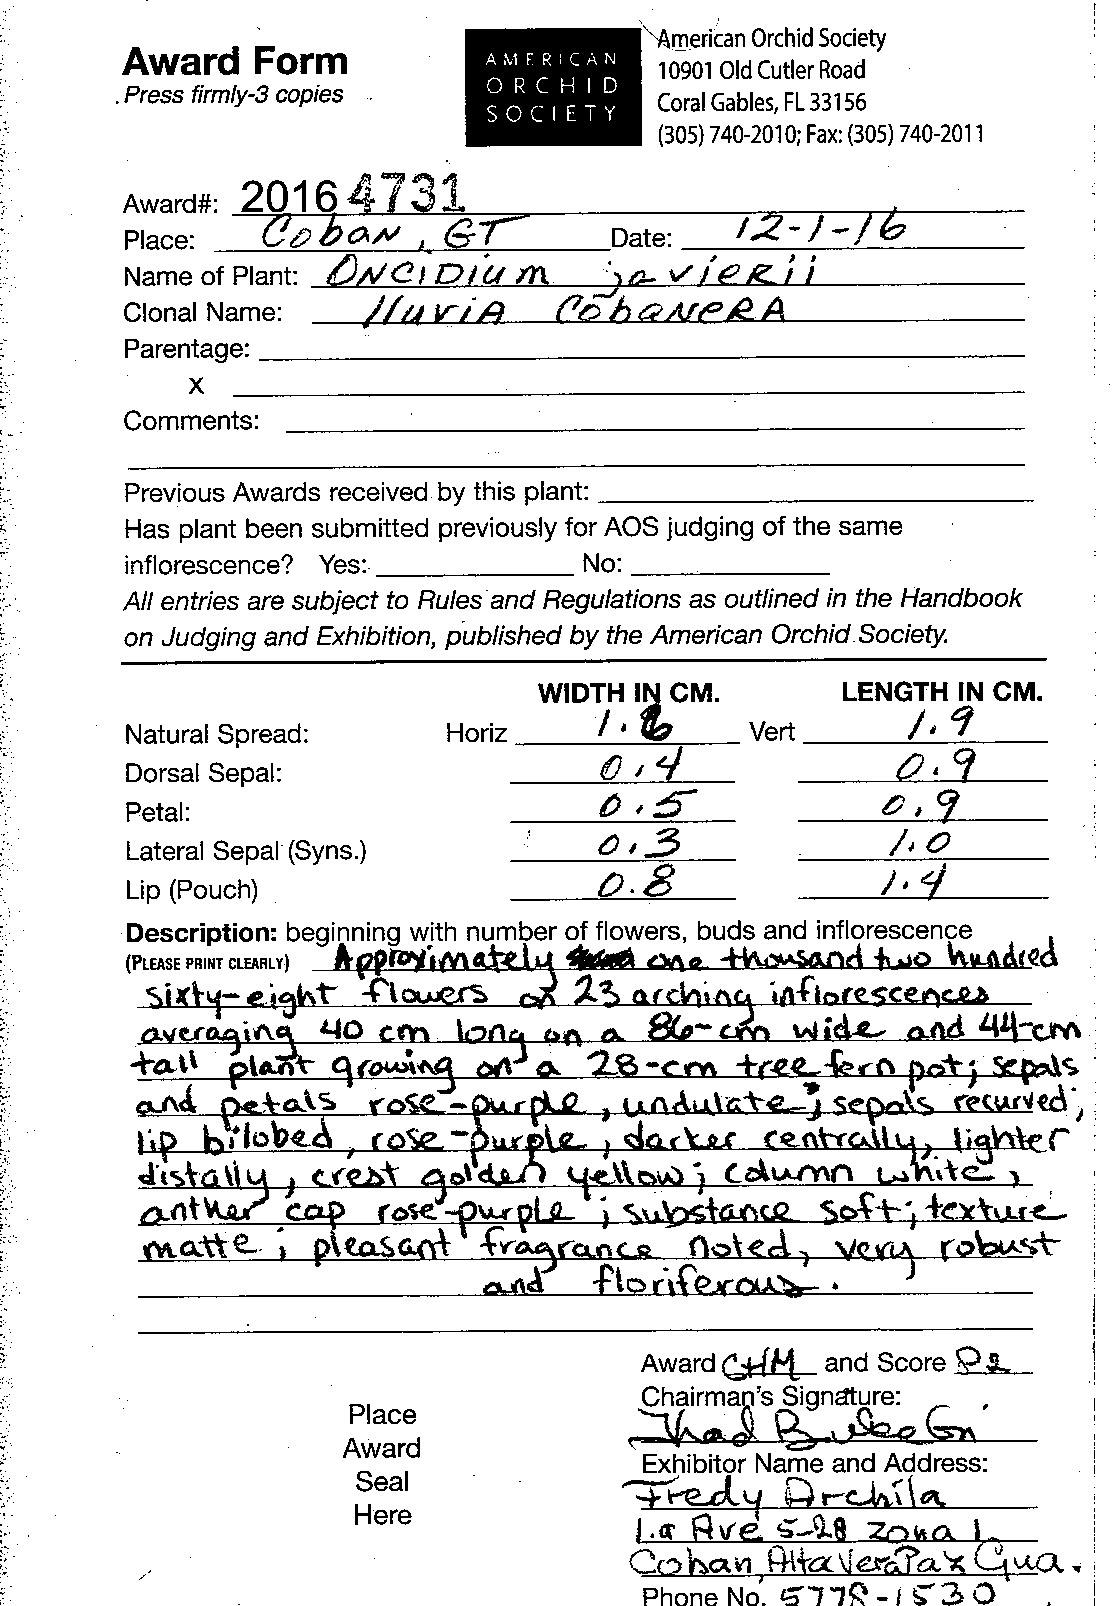 Award Form
Press firmly-3 copies
AMERICAN
ORCHID
SOCIETY
American Orchid Society
10901 Old Cutler Road
Coral Gables, FL 33156
(305) 740-2010; Fax: (305) 740-2011
Award#: 20164731
Place: Coban, GT Date: 12-1-16
Name of Plant: Oncidium javierii
Clonal Name: lluvia Cobanera
Parentage:
X
Comments:
Previous Awards received by this plant:
Has plant been submitted previously for AOS judging of the same
inflorescence? Yes: No:
All entries are subject to Rules and Regulations as outlined in the Handbook
on Judging and Exhibition, published by the American Orchid Society.
WIDTH IN CM. LENGTH IN CM.
Natural Spread: Horiz Vert 1.9
Dorsal Sepal: 0.4 0.9
Petal: 0.5 0.9
Lateral Sepal (Syns.) 0.3 1.0
Lip (Pouch) 0.8 1.4
Description: beginning with number of flowers, buds and inflorescence
(PLEASE PRINT CLEARLY) Approximately one thousand two hundred
sixty-eight flowers on 23 arching inflorescences
averaging 40 cm long on a 86-cm wide and 44-cm
tall plant growing on a 28-cm tree fern pot; sepals
and petals rose-purple, undulate; sepals recurved;
lip bilobed, rose-purple, darker centrally, lighter
distally, crest golden yellow; column white,
anther cap rose-purple; substance soft; texture
matte; pleasant fragrance noted, very robust
and floriferous.
Award CHM and Score 82
Place
Award
Seal
Here
Chairman's Signature:
Thad
Exhibitor Name and Address:
Fredy Archila
1.a Ave 5-28 zona 1
Coban, Alta VeraPaz Gua.
Phone No. 5778-1530